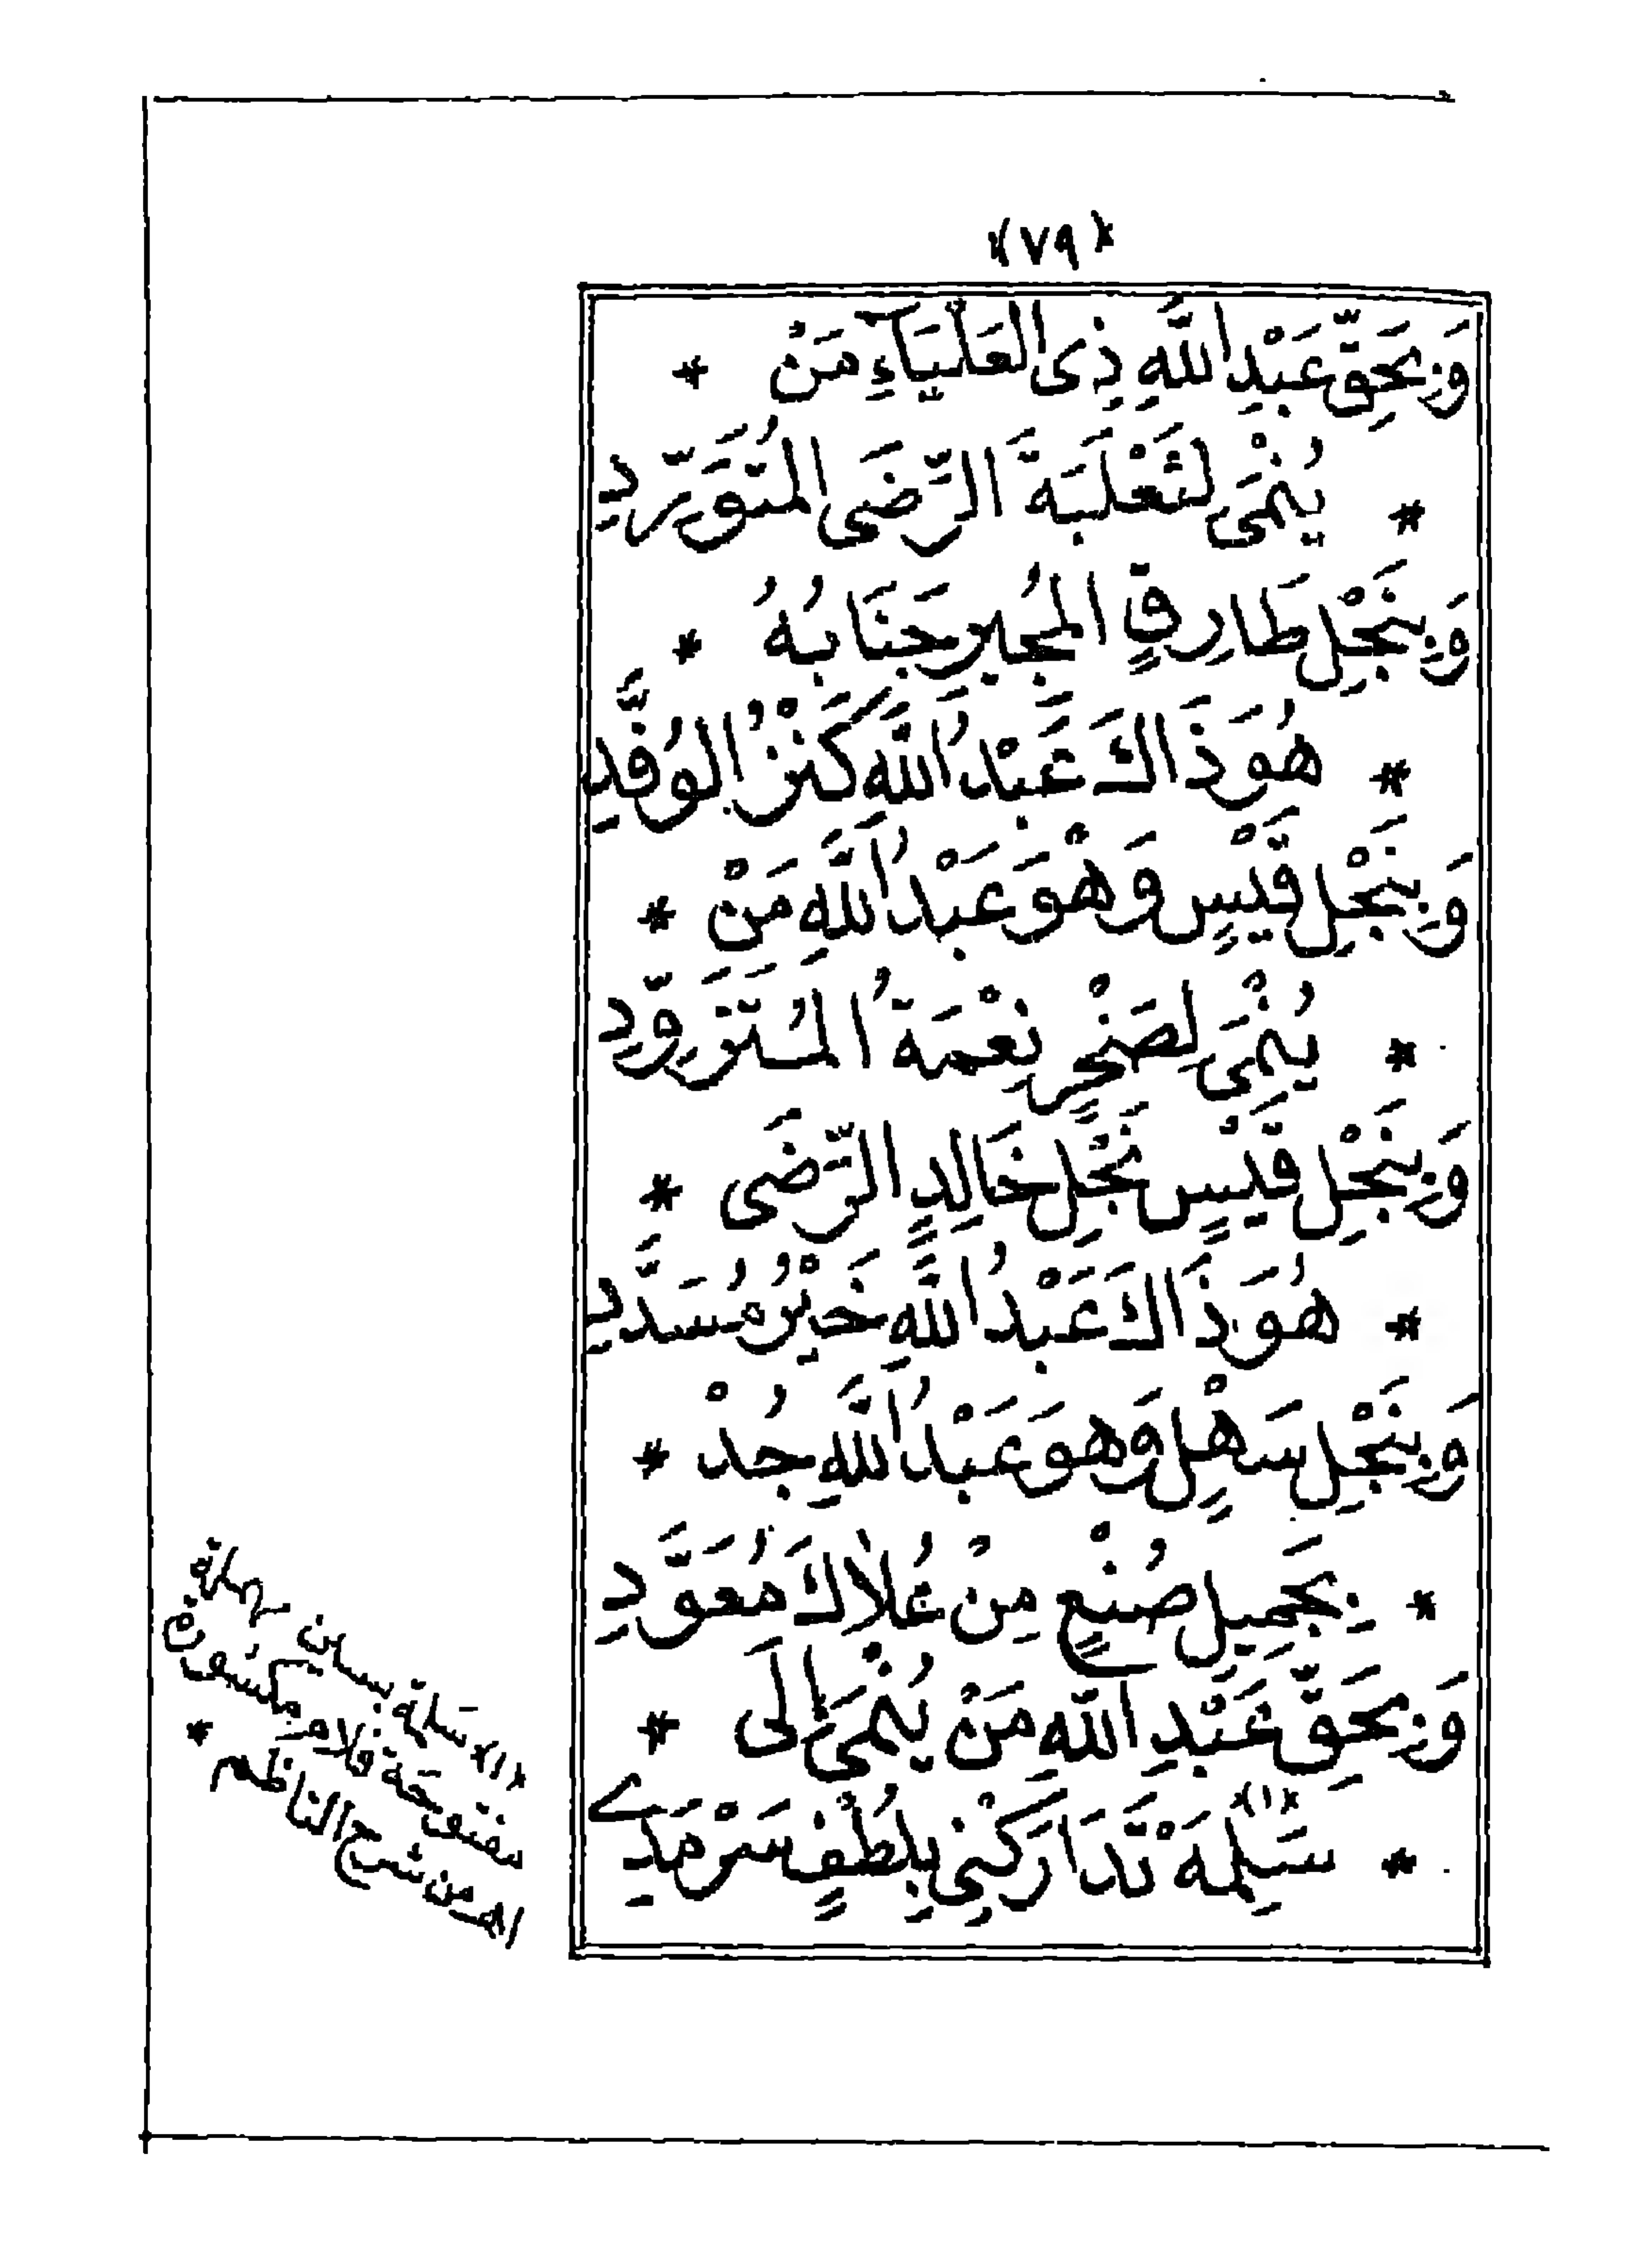 *(٧٩)*
وَبِحَقِّ عَبْدِ اللَّهِ ذِى العَلْيَآءِ مَنْ *
* يُنْمَى لِثَعْلَبَةَ الرِّضَى المُتَوَرِّدِ
وَبِنَجْلِ طَارِقٍ المُجِيرِ جَنَابُهُ *
* هُوَ ذَاكَ عَبْدُ اللَّهِ كَنْزُ الوُفَّدِ
وَبِنَجْلِ قَيْسٍ وَهْوَ عَبْدُ اللَّهِ مَنْ *
* يُنْمَى لِصَخْرٍ نِعْمَةُ المُتَزَوِّدِ
وَبِنَجْلِ قَيْسٍ نَجْلِ خَالِدٍ الرِّضَى *
* هُوَ ذَاكَ عَبْدُ اللَّهِ خَيْرُ مُسَدَّدِ
وَبِنَجْلِ سَهْلٍ وَهوَ عَبْدُ اللَّهِ جُدْ *
* بِجَمِيلِ صُنْعٍ مِنْ عُلَاكَ مُعَوَّدِ
وَبِحَقِّ عَبْدِ اللَّهِ مَنْ يُنْمَى إِلَى *
* سَلِمَةْ(١) تَدَارَكْنِي بِلُطْفٍ سَرْمَدِي
(١) سَلِمة بسين مهملة
مفتوحة فلام مكسورة
اهـ من شرح الناظم *